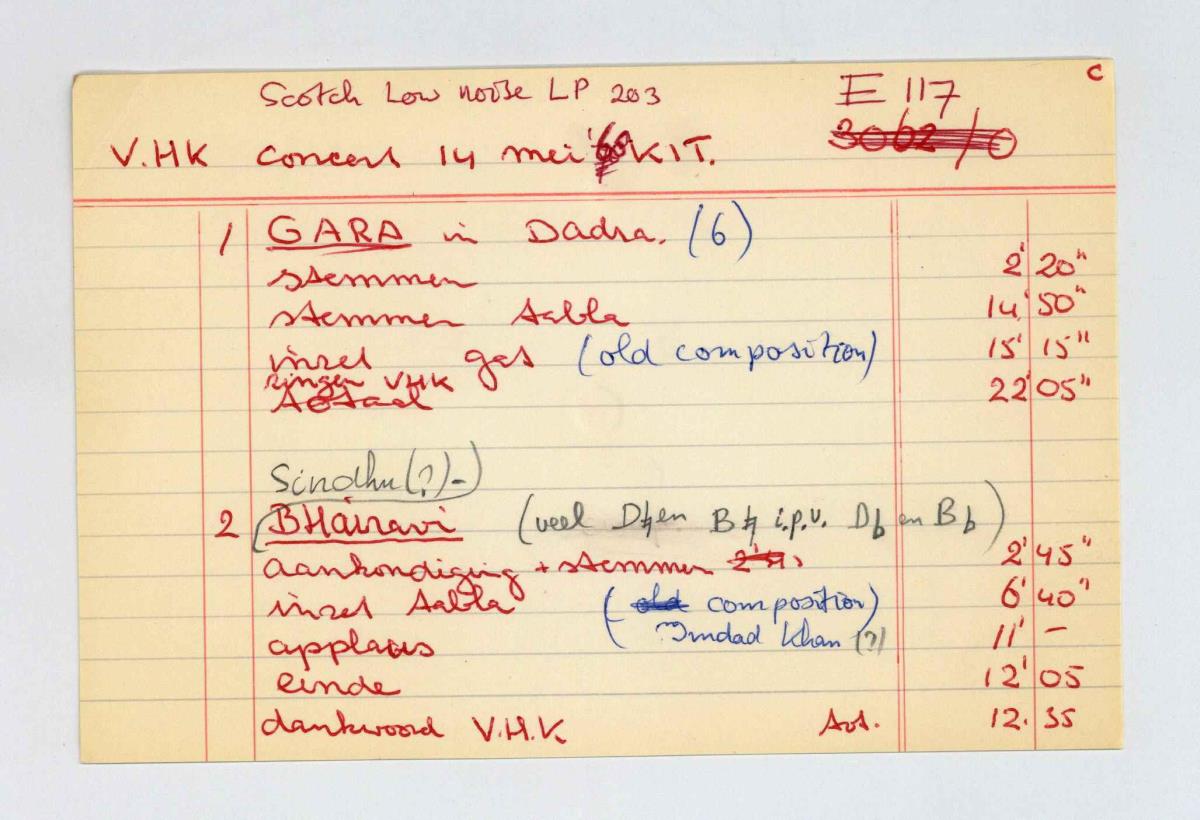 c
Scotch Low noise LP 203 E 117
V.HK concert 14 mei '68 KIT.
1 GARA in Dadra. (6)
stemmen 2' 20"
stemmen tabla 14' 50"
inzet gat (old composition) 15' 15"
zingen VHK 22' 05"
totaal
Sindhu(?)-)
2 (BHairavi (veel D♮ en B♮ i.p.v. D♭ en B♭)
aankondiging + stemmen 2' 45"
inzet tabla (old composition) 6' 40"
Imdad Khan (?)
applaus 11' -
einde 12' 05
dankwoord V.H.K tot. 12. 35